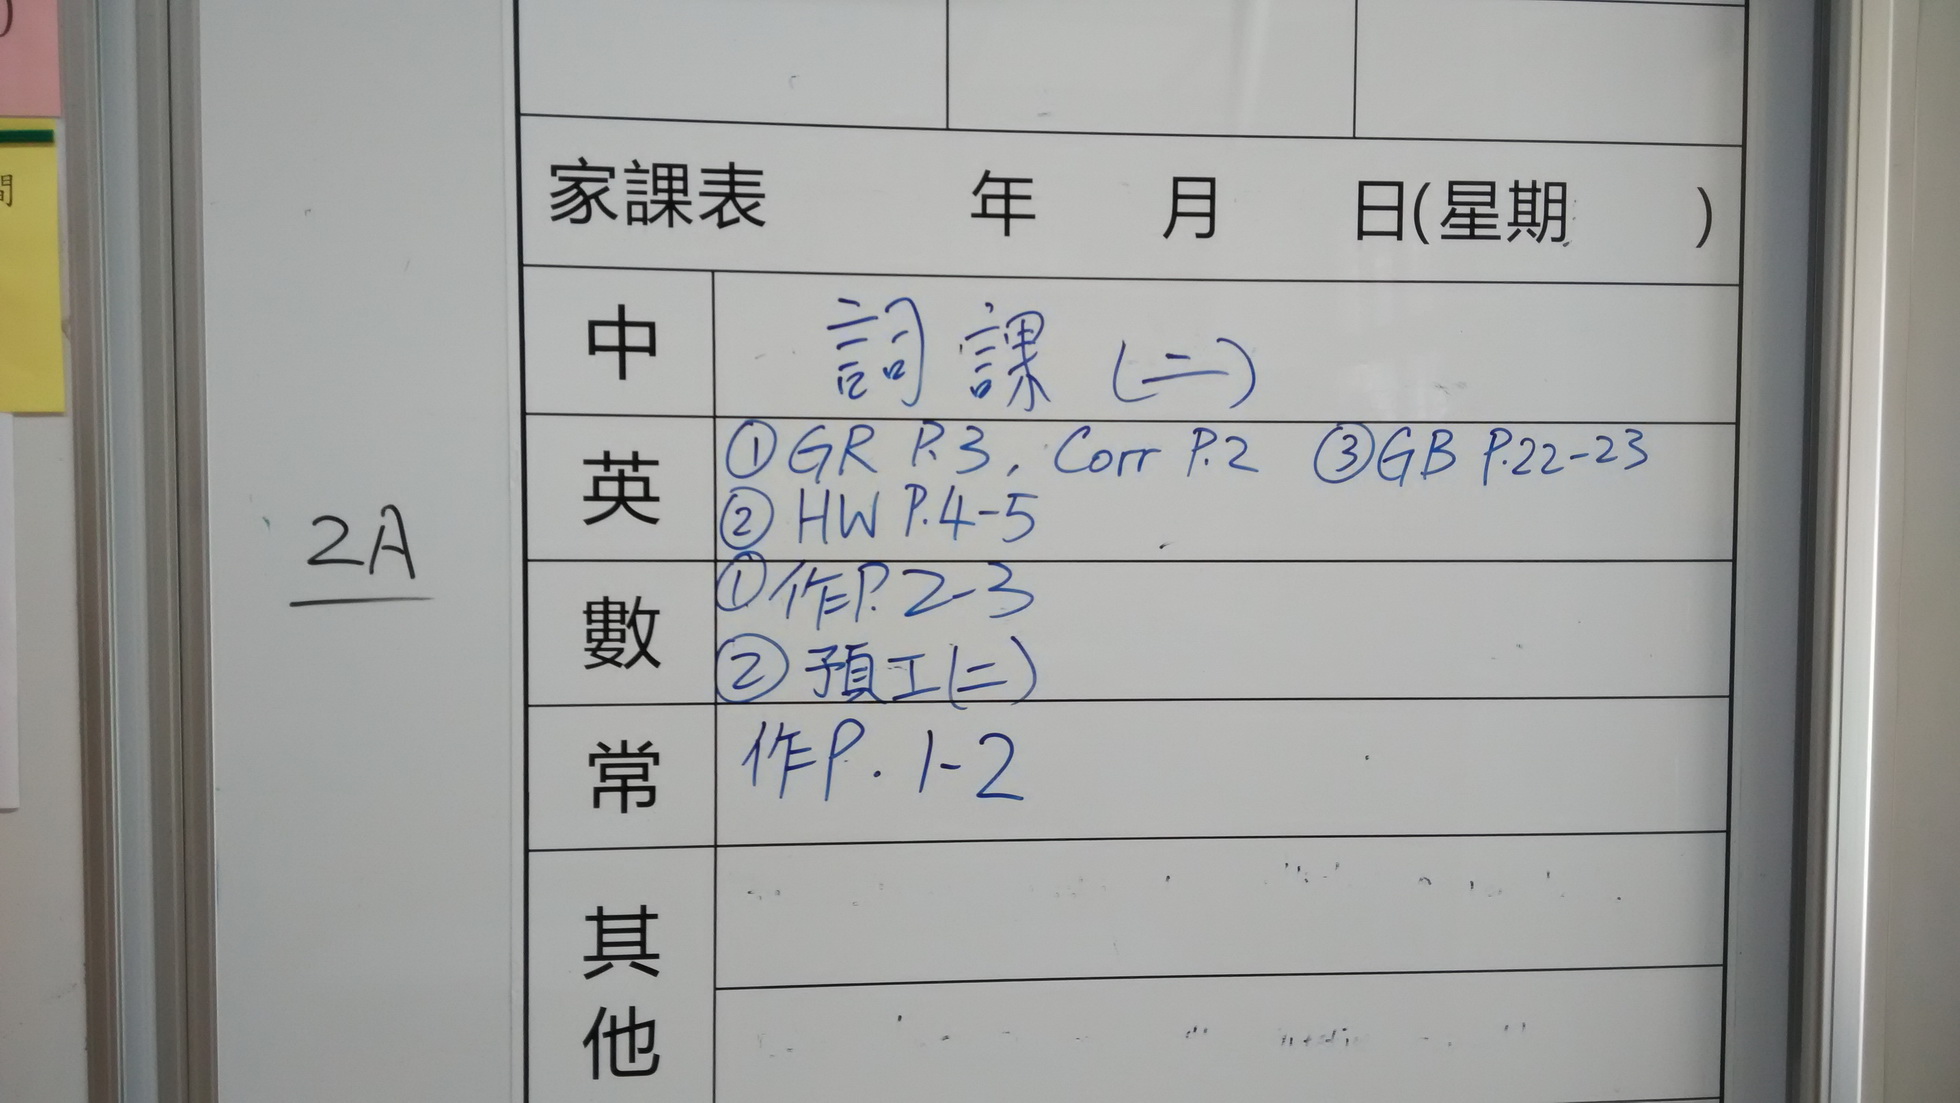 間
家課表 年 月 日(星期 )
中 詞課(二)
英 ①GR P.3, Corr P.2 ③GB P.22-23
② HW P.4-5
2A
數 ①作P.2-3
②預工(二)
常 作P.1-2
其他